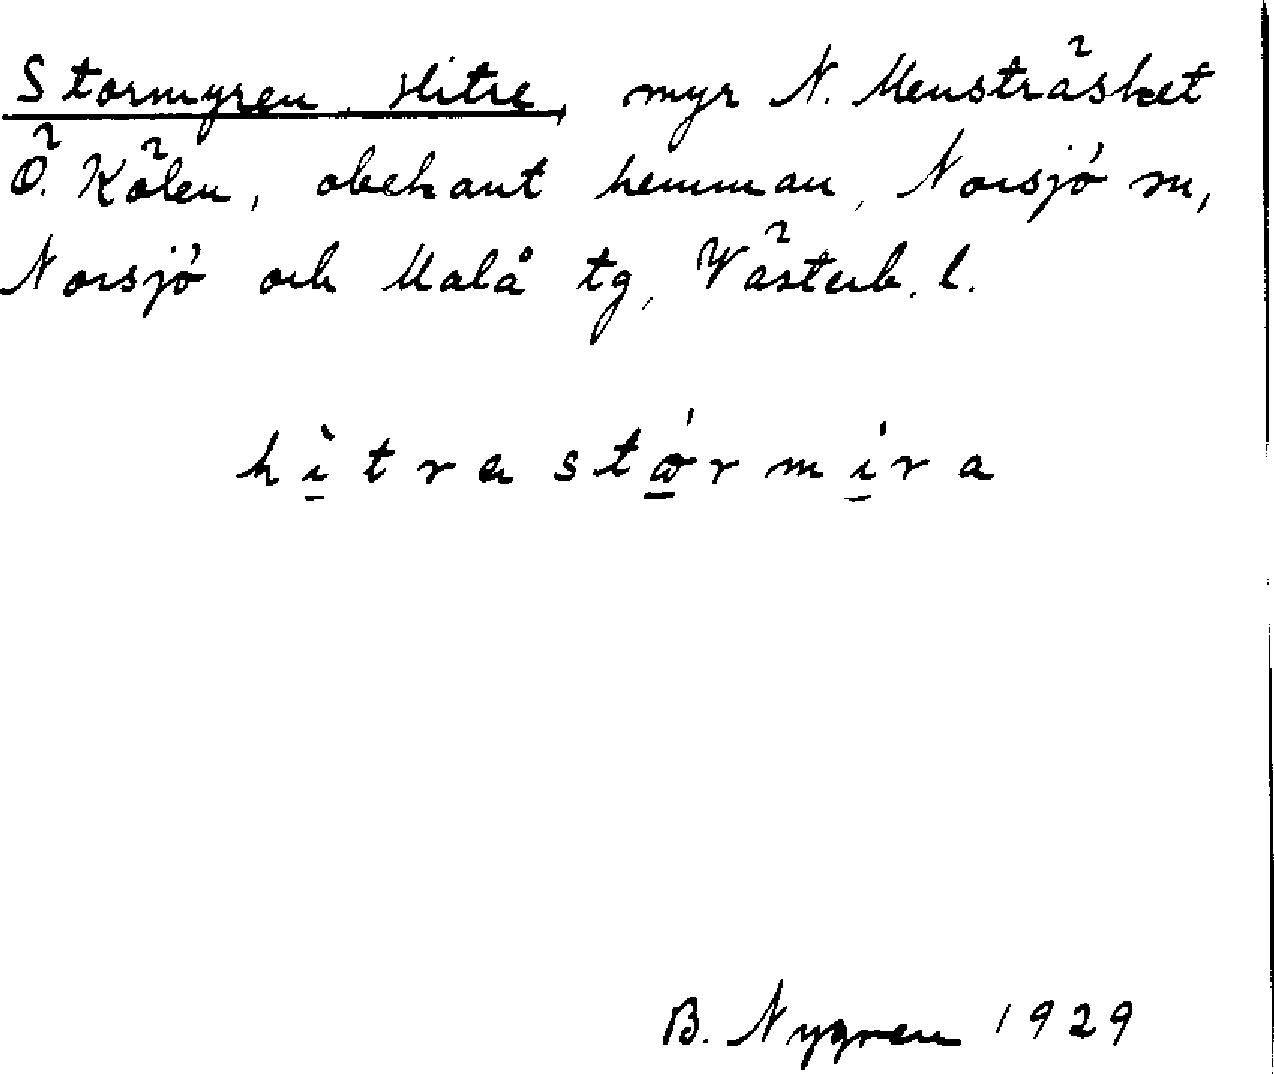 Stormyren, Hitre, myr N. Mensträsket
Ö. Kölen, obekant hemman, Norsjö sn,
Norsjö och Malå tg, Västerb. l.
hìtra stórmíra
B. Nygren 1929